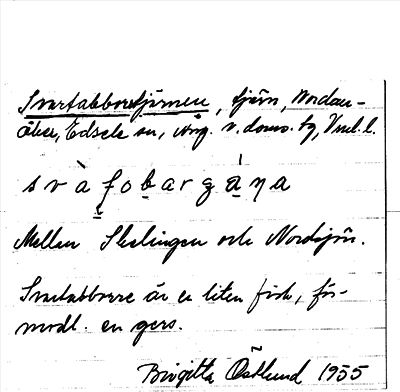 Svartabborrtjärnen, tjärn, Nordan-
åker, Edsele sn, Ång. v. doms. tg, Vnrl. l.
svàfobargána
Mellan Skalingen och Nordsjön.
Svartabborre är en liten fisk, för-
modl. en gers.
Birgitta Östlund 1955